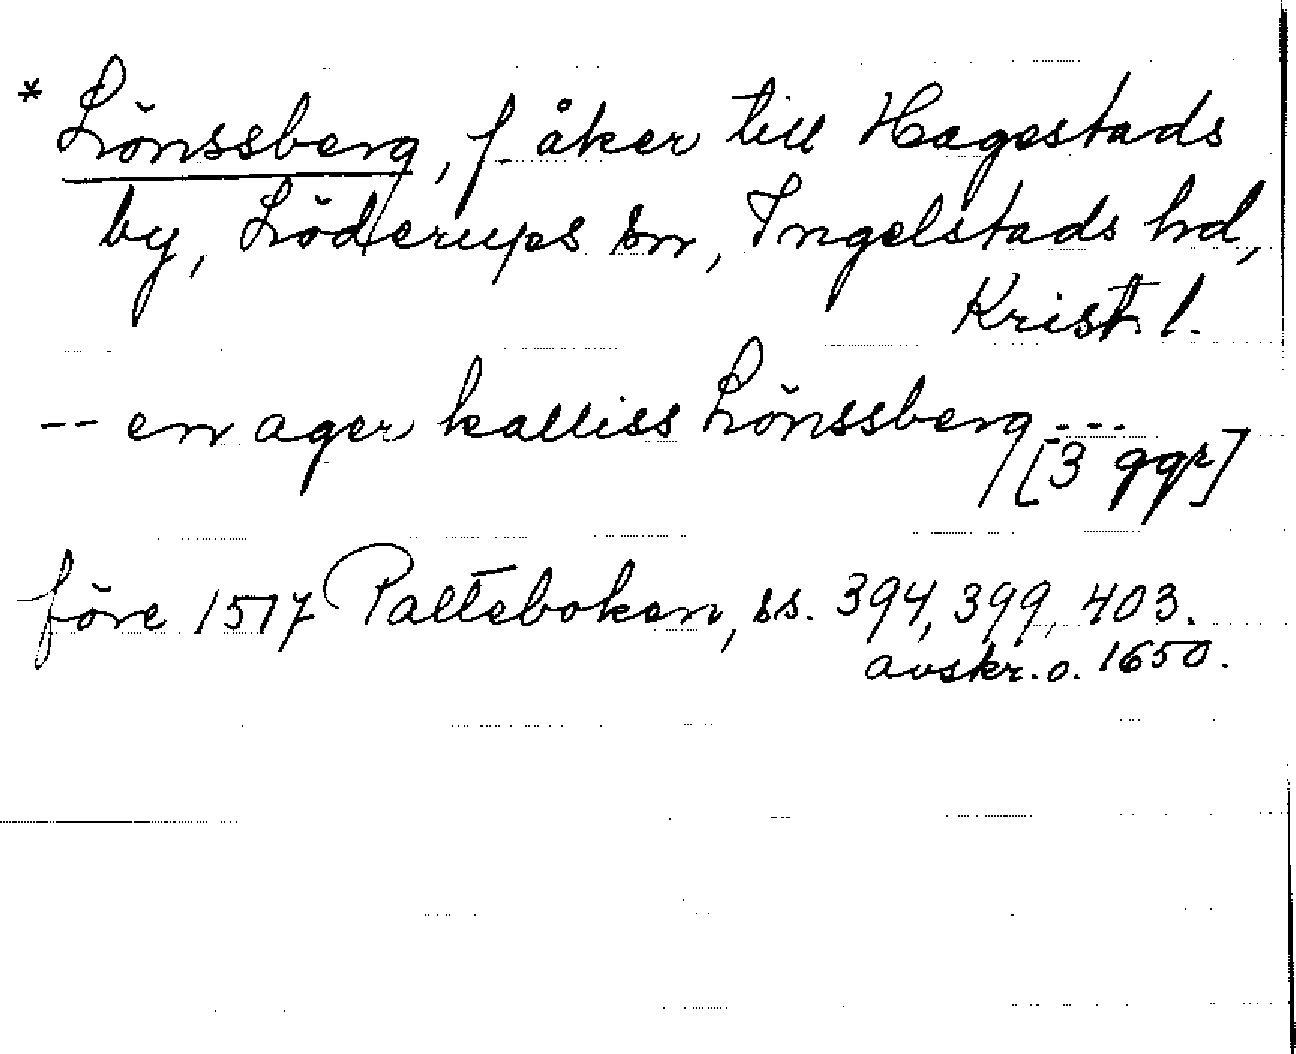 * Lönssberg, f. åker till Hagestads
by, Löderups sn, Ingelstads hd,
Krist. l.
-- en ager kalliss Lönssberg ...
[3 ggr]
före 1517 Palteboken, ss. 394, 399, 403.
avskr. o. 1650.